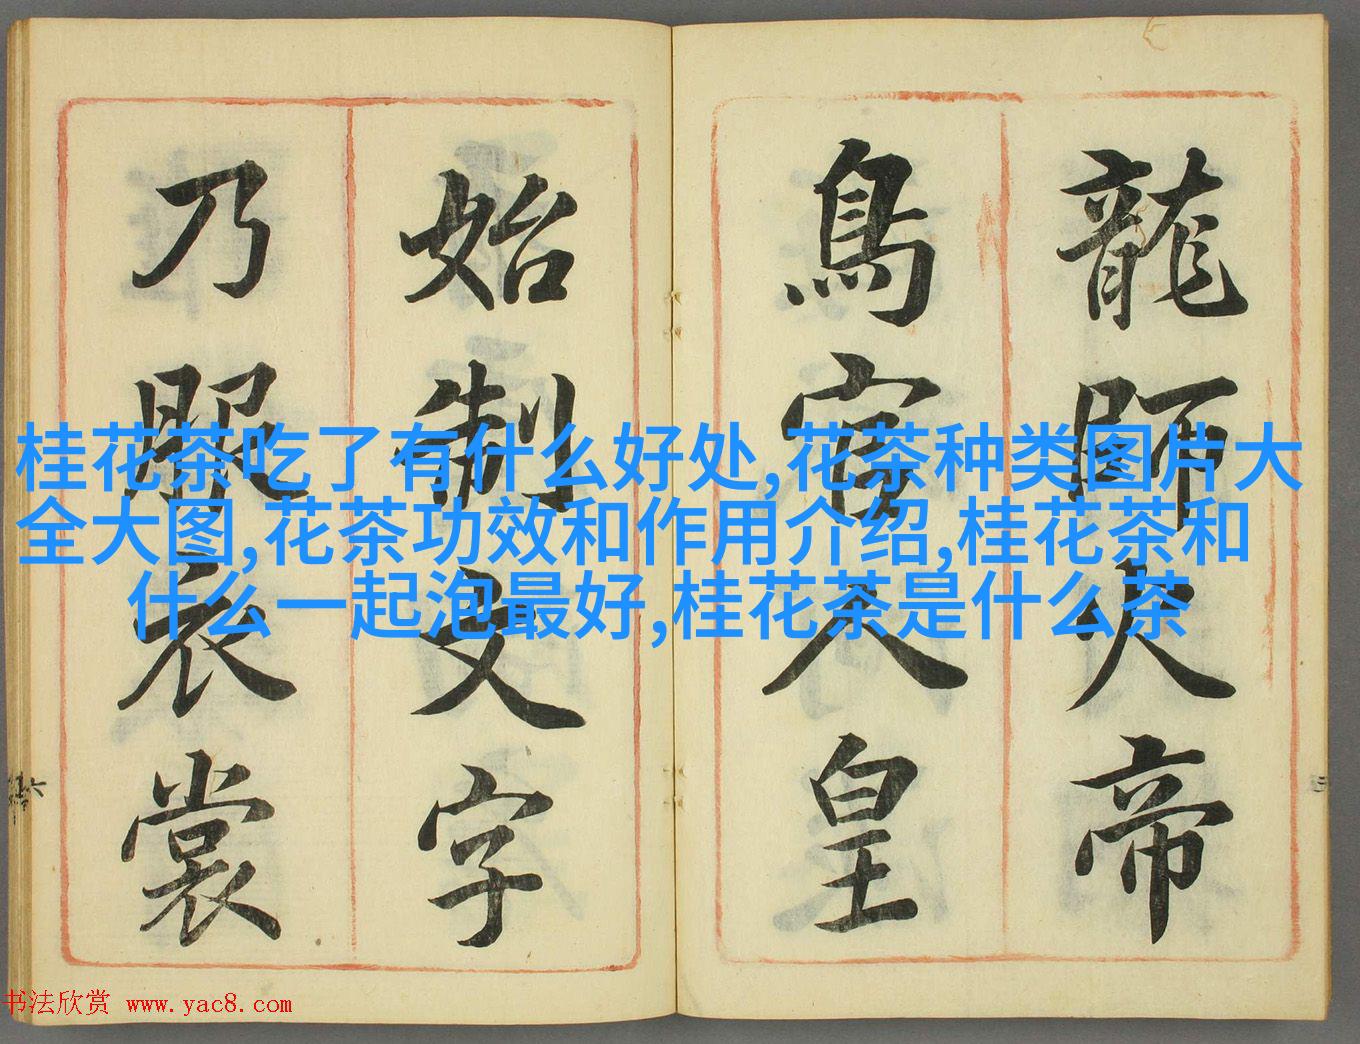 龍師火帝
鳥官人皇
始制文字
乃服衣裳
桂花茶吃了有什么好处,花茶种类图片大
全大图,花茶功效和作用介绍,桂花茶和
什么一起泡最好,桂花茶是什么茶
书法欣赏 www.yac8.com